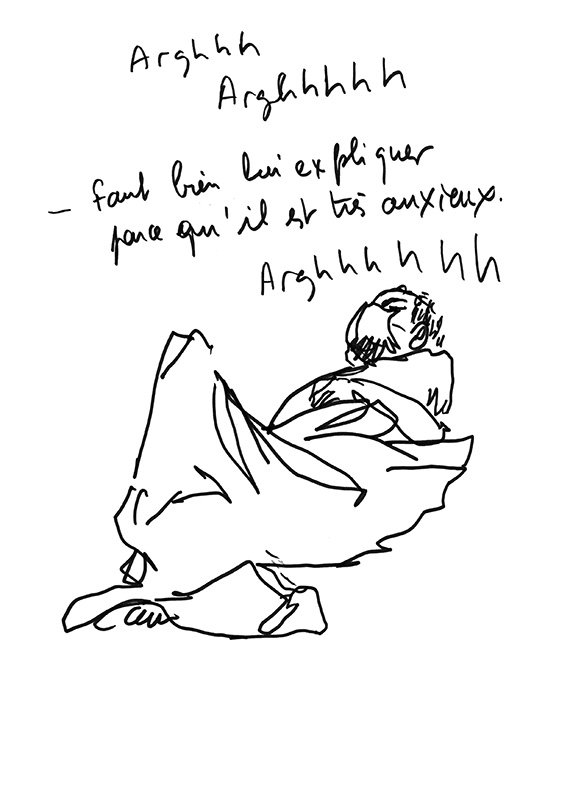 Arghhh
Arghhhhh
– faut bien lui expliquer
parce qu'il est très anxieux.
Arghhhhhh